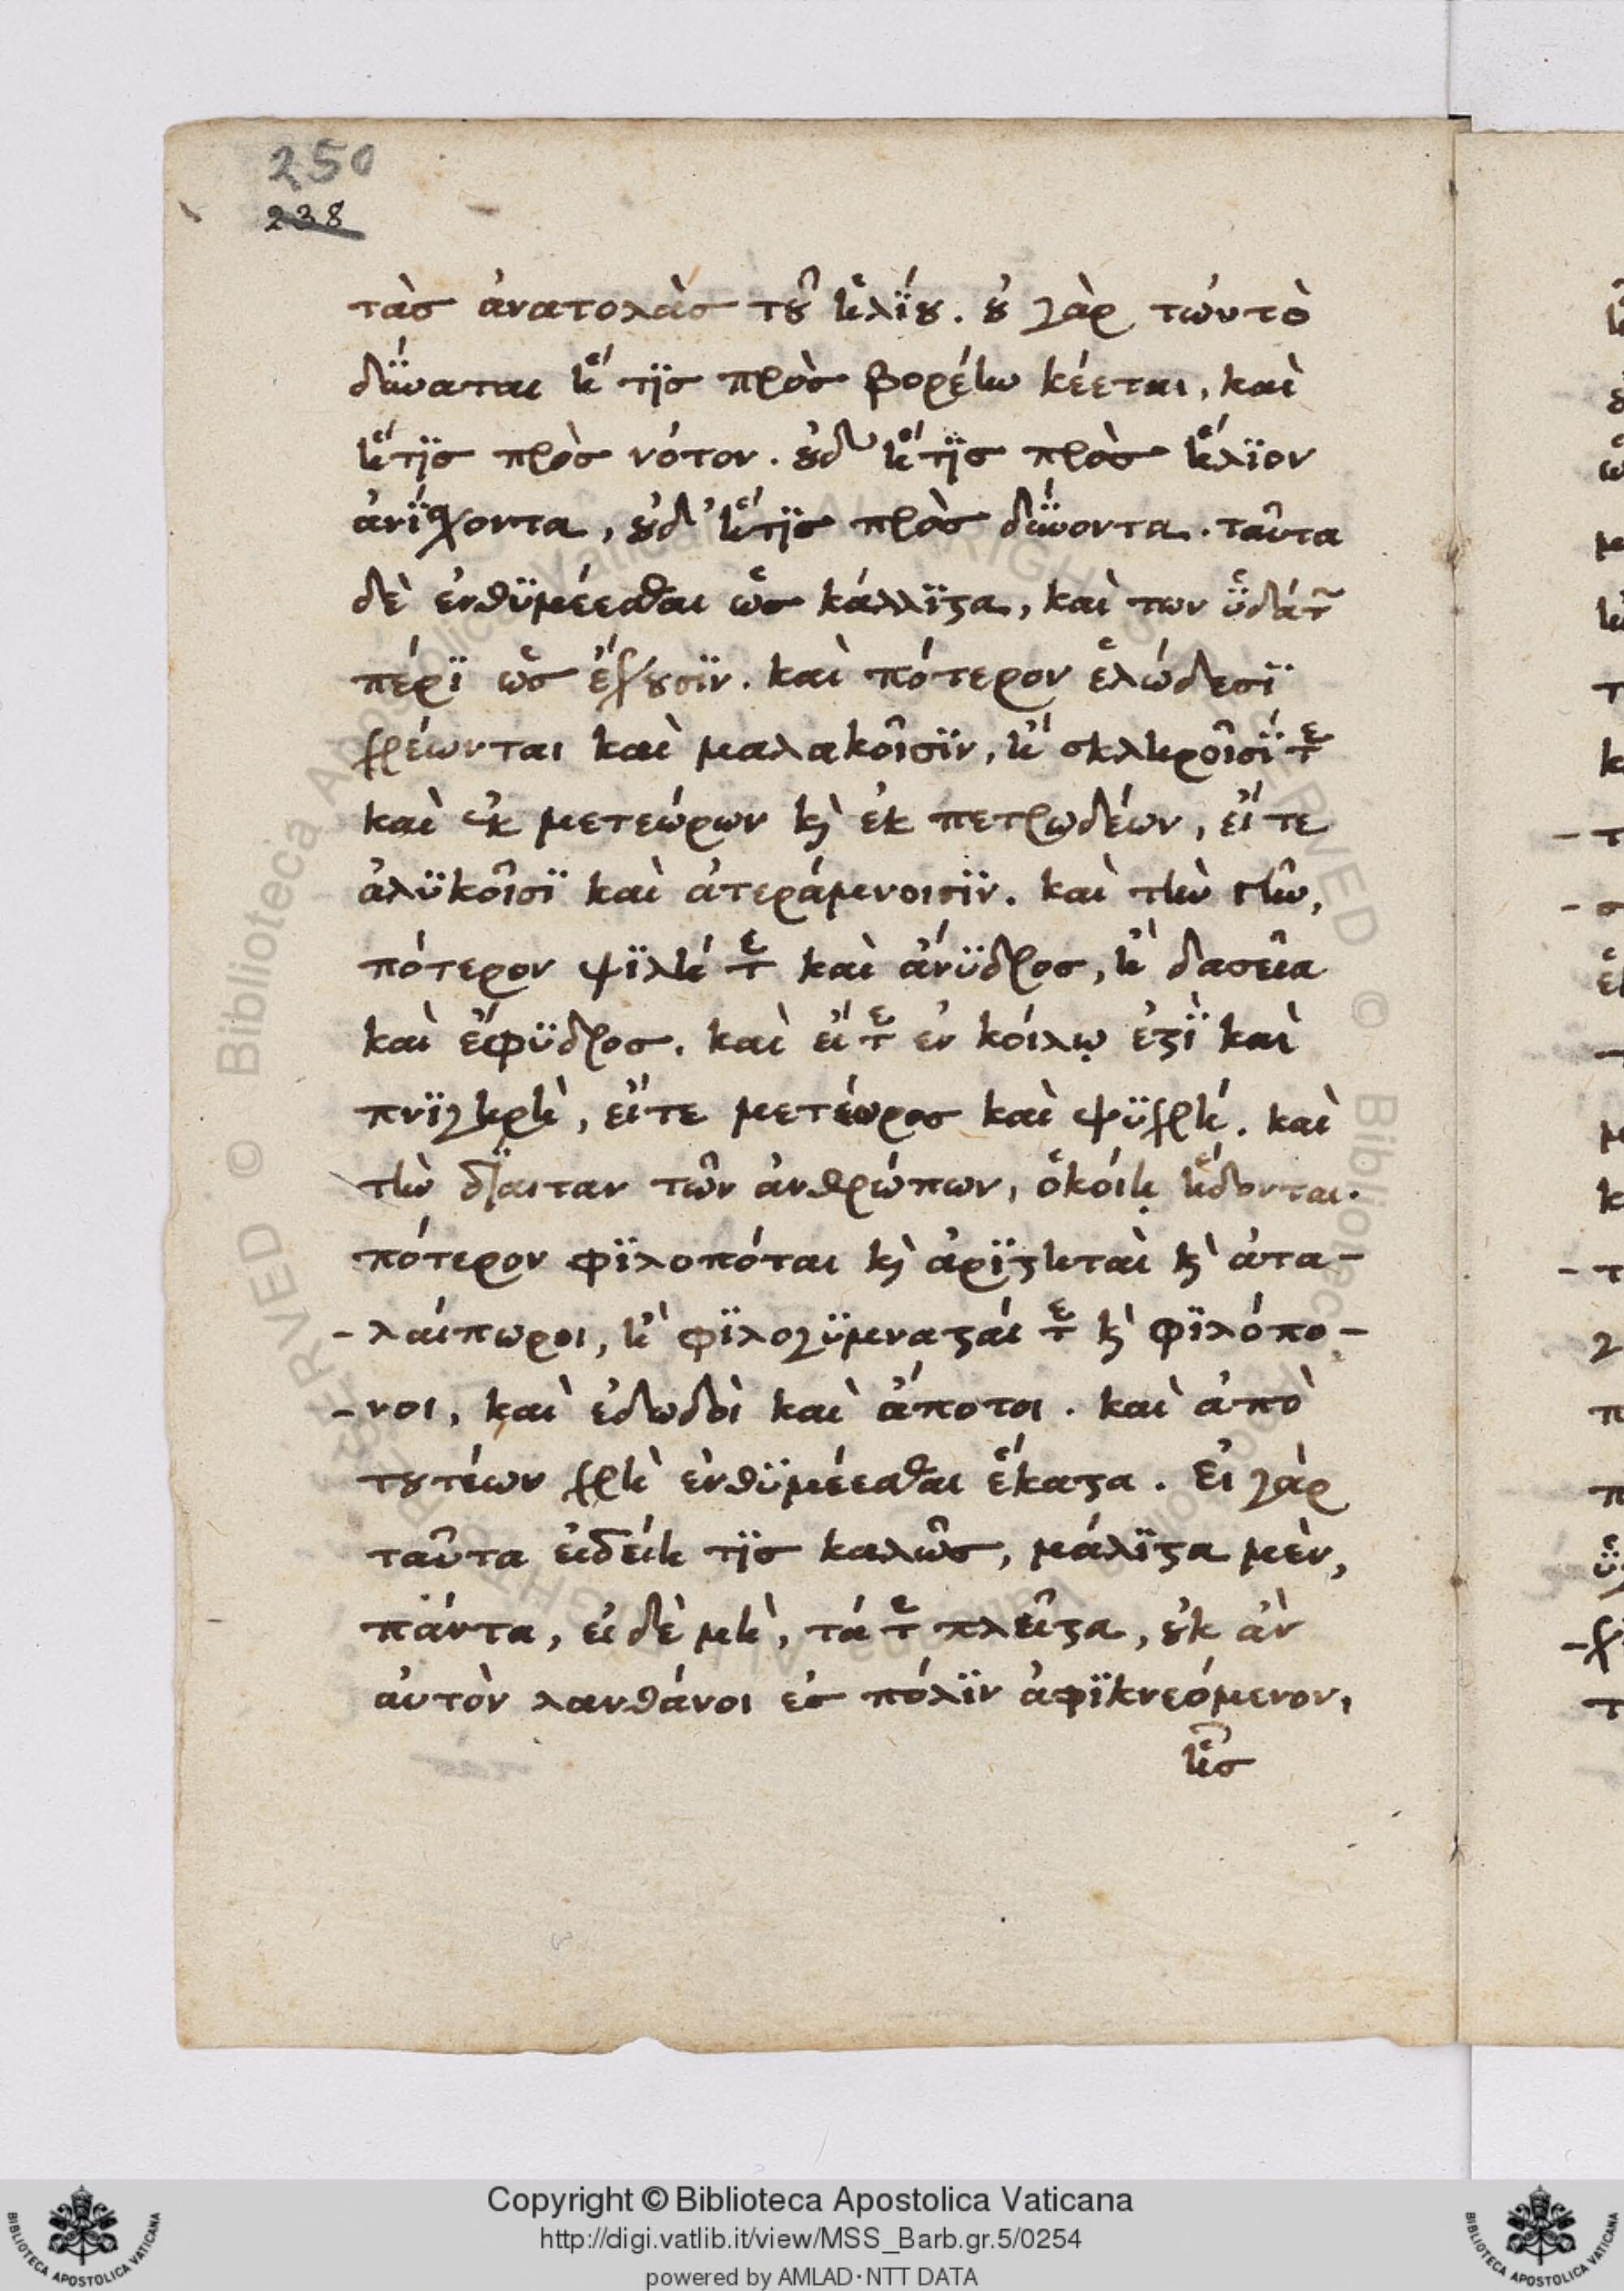 250
238
τὰσ ἀνατολὰσ τȣ͂ ἡλΐȣ. ȣ̓ γὰρ τὠυτὸ
δύ̈ναται ἥ τϊσ πρὸσ βορέην κέεται, καὶ
ἥτϊσ πρὸσ νότον. ȣ̓δ' ἥτϊσ πρὸσ ἥλϊον
ἀνΐσχοντα, ȣ̓δ' ἥτϊσ πρὸσ δύ̈νοντα. ταῦτα
δὲ ἐνθϋμέεσθαι ὡσ κάλλϊϛα, καὶ των ὑ̈δάτ~
πέρϊ ὡσ ἔχȣσϊν. καὶ πότερον ἑλώδεσϊ
χρέωνται καὶ μαλακοῖσϊν, ἢ σκληροῖσΐ τε
καὶ ἐκ μετεώρων κ̀ ἐκ πετρωδέων, εἴ τε
ἁλϋκοῖσϊ καὶ ἀτεράμνοισϊν. καὶ τὴν γῆν,
πότερον ψϊλή τε καὶ ἄνϋδρος, ἢ δασεῖα
καὶ ἔφϋδρος. καὶ εἴ τε ἐν κόιλῳ ἐϛὶ̈ καὶ
πνϊγηρὴ, εἴτε μετέωρος καὶ ψϋχρή. καὶ
τὴν δΐαιταν τῶν ἀνθρώπων, ὁκόιῃ ἥδονται.
πότερον φϊλοπόται κ̀ ἀρϊϛηταὶ κ̀ ἀτα-
-λάιπωροι, ἢ φϊλογϋμναϛάι τε κ̀ φϊλόπο-
-νοι, καὶ ἐδωδοὶ καὶ ἄποτοι. καὶ ἀπὸ
τȣτέων χρὴ ἐνθϋμέεσθαι ἕκαϛα. εἰ γὰρ
ταῦτα εἰδείη τϊσ καλῶσ, μάλϊϛα μὲν,
πάντα, εἰ δὲ μὴ, τά τε πλεῖϛα, ȣ̓κ ἀν
ἀυτὸν λανθάνοι ἐσ πόλϊν ἀφϊκνεόμενον,
ἧσ
Copyright © Biblioteca Apostolica Vaticana
http://digi.vatlib.it/view/MSS_Barb.gr.5/0254
powered by AMLAD·NTT DATA